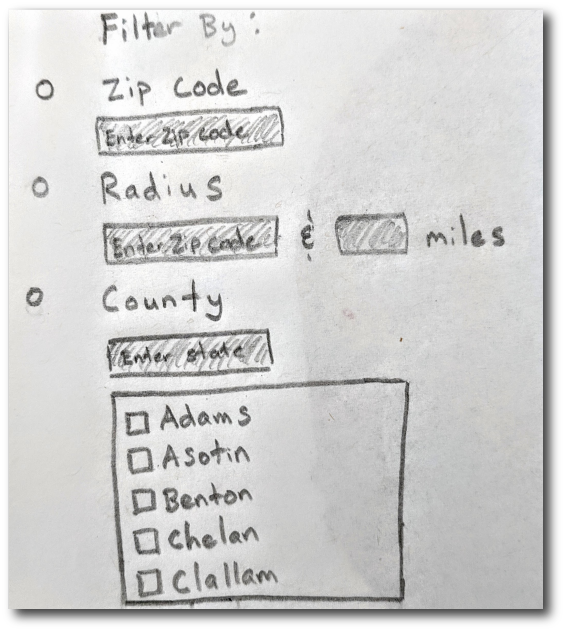 Filter By:
Zip Code
Enter Zip code
Radius
Enter Zip code & miles
County
Enter state
Adams
Asotin
Benton
Chelan
Clallam